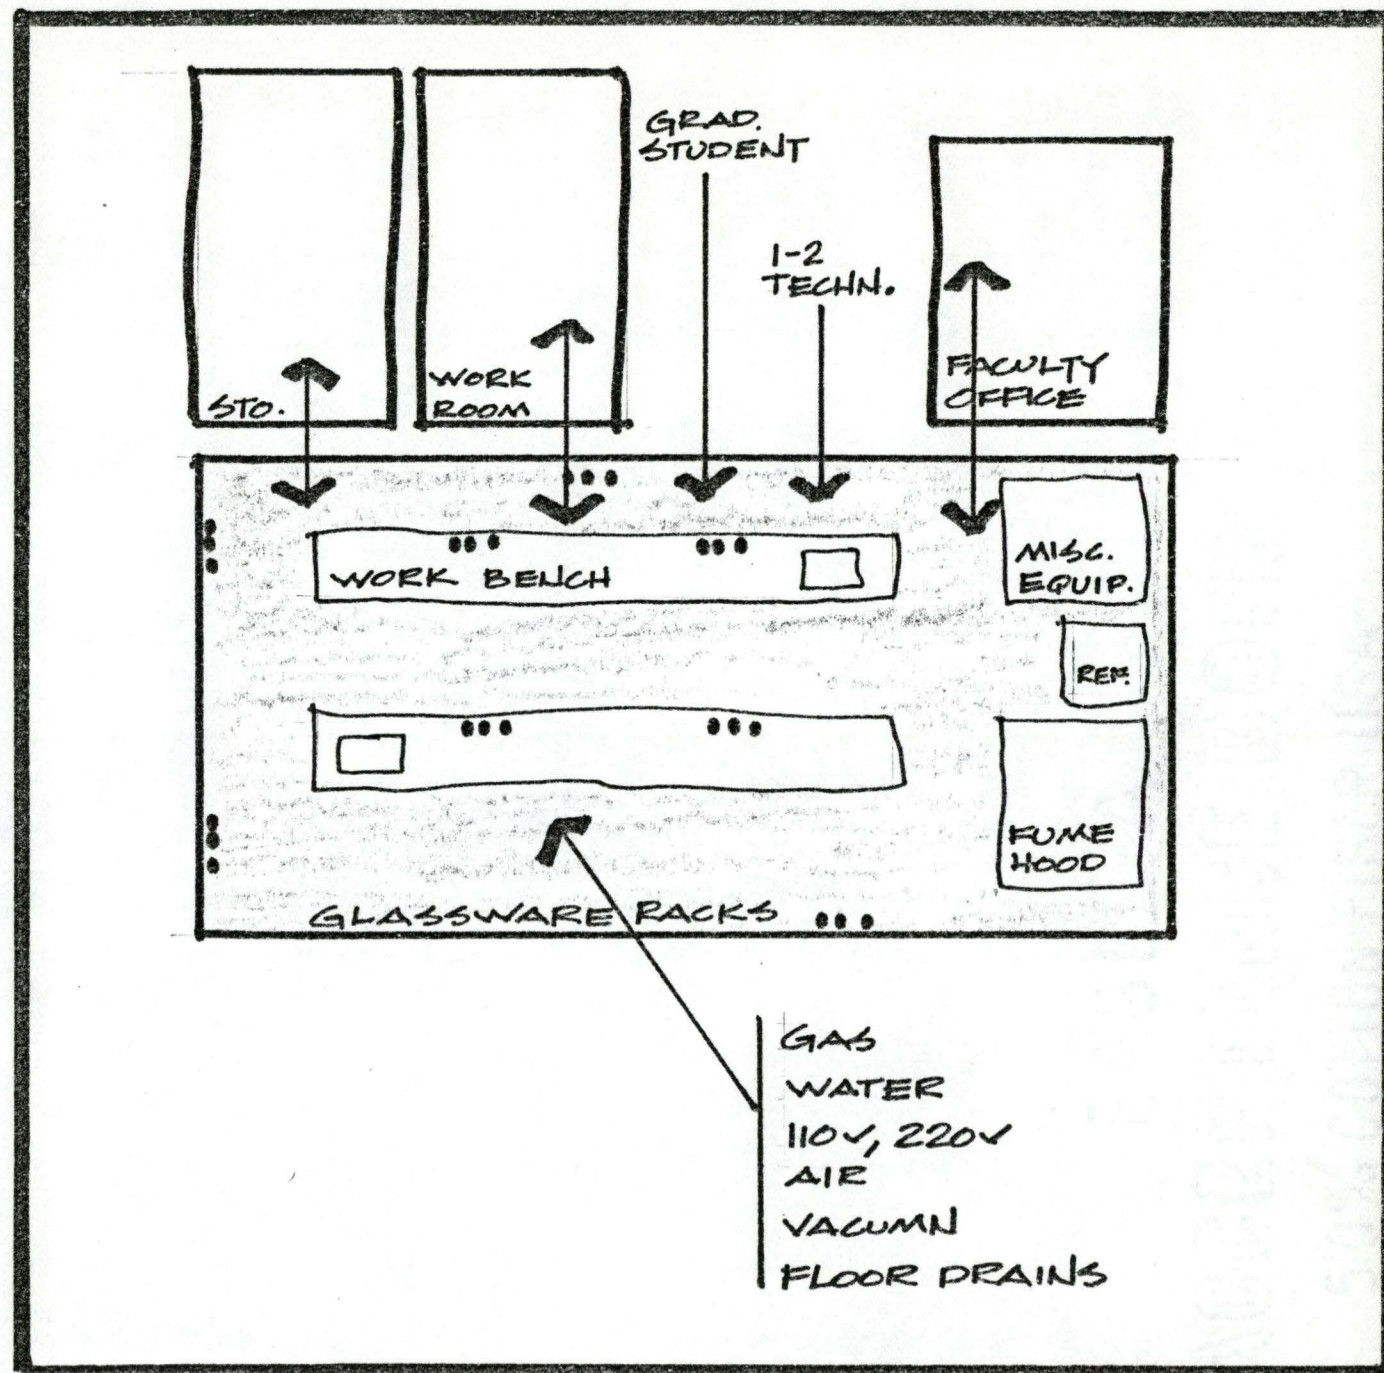 GRAD.
STUDENT
1-2
TECHN.
STO.
WORK
ROOM
FACULTY
OFFICE
WORK BENCH
MISC.
EQUIP.
REF.
FUME
HOOD
GLASSWARE RACKS
GAS
WATER
110V, 220V
AIR
VACUMN
FLOOR DRAINS